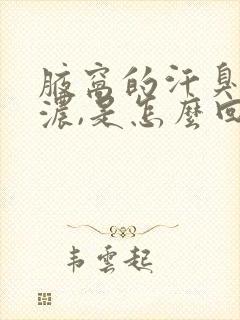 腋窝的汗臭
濃,是怎麼回
韦雲起